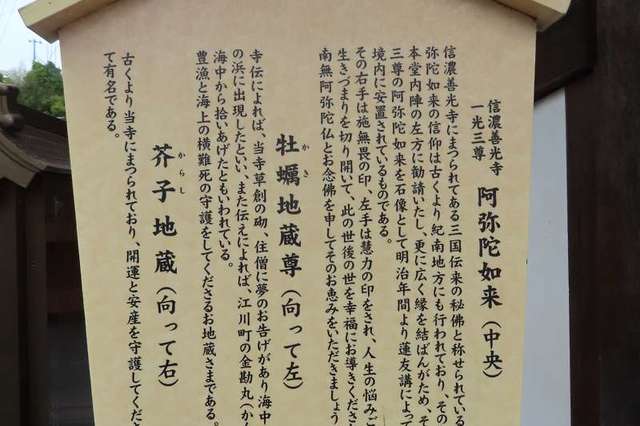 信濃善光寺
一光三尊 阿弥陀如来（中央）
信濃善光寺にまつられてある三国伝来の秘佛と称せられている
弥陀如来の信仰は古くより紀南地方にも行われており、その
本堂内陣の左方に勧請いたし、更に広く縁を結ばんがため、そ
三尊の阿弥陀如来を石像として明治年間より蓮友講によって
境内に安置されているものである。
その右手は施無畏の印、左手は慧力の印をされ、人生の悩みご
生きづまりを切り開いて、此の世後の世を幸福にお導きくださ
南無阿弥陀仏とお念佛を申してそのお恵みをいただきましょう
牡蠣地蔵尊（向って左）
かき
寺伝によれば、当寺草創の砌、住僧に夢のお告げがあり海中
の浜に出現したといい、また伝えによれば、江川町の金勘丸（かん
海中から拾いあげたともいわれている。
豊漁と海上の横難死の守護をしてくださるお地蔵さまである。
芥子地蔵（向って右）
からし
古くより当寺にまつられており、開運と安産を守護してくださ
て有名である。